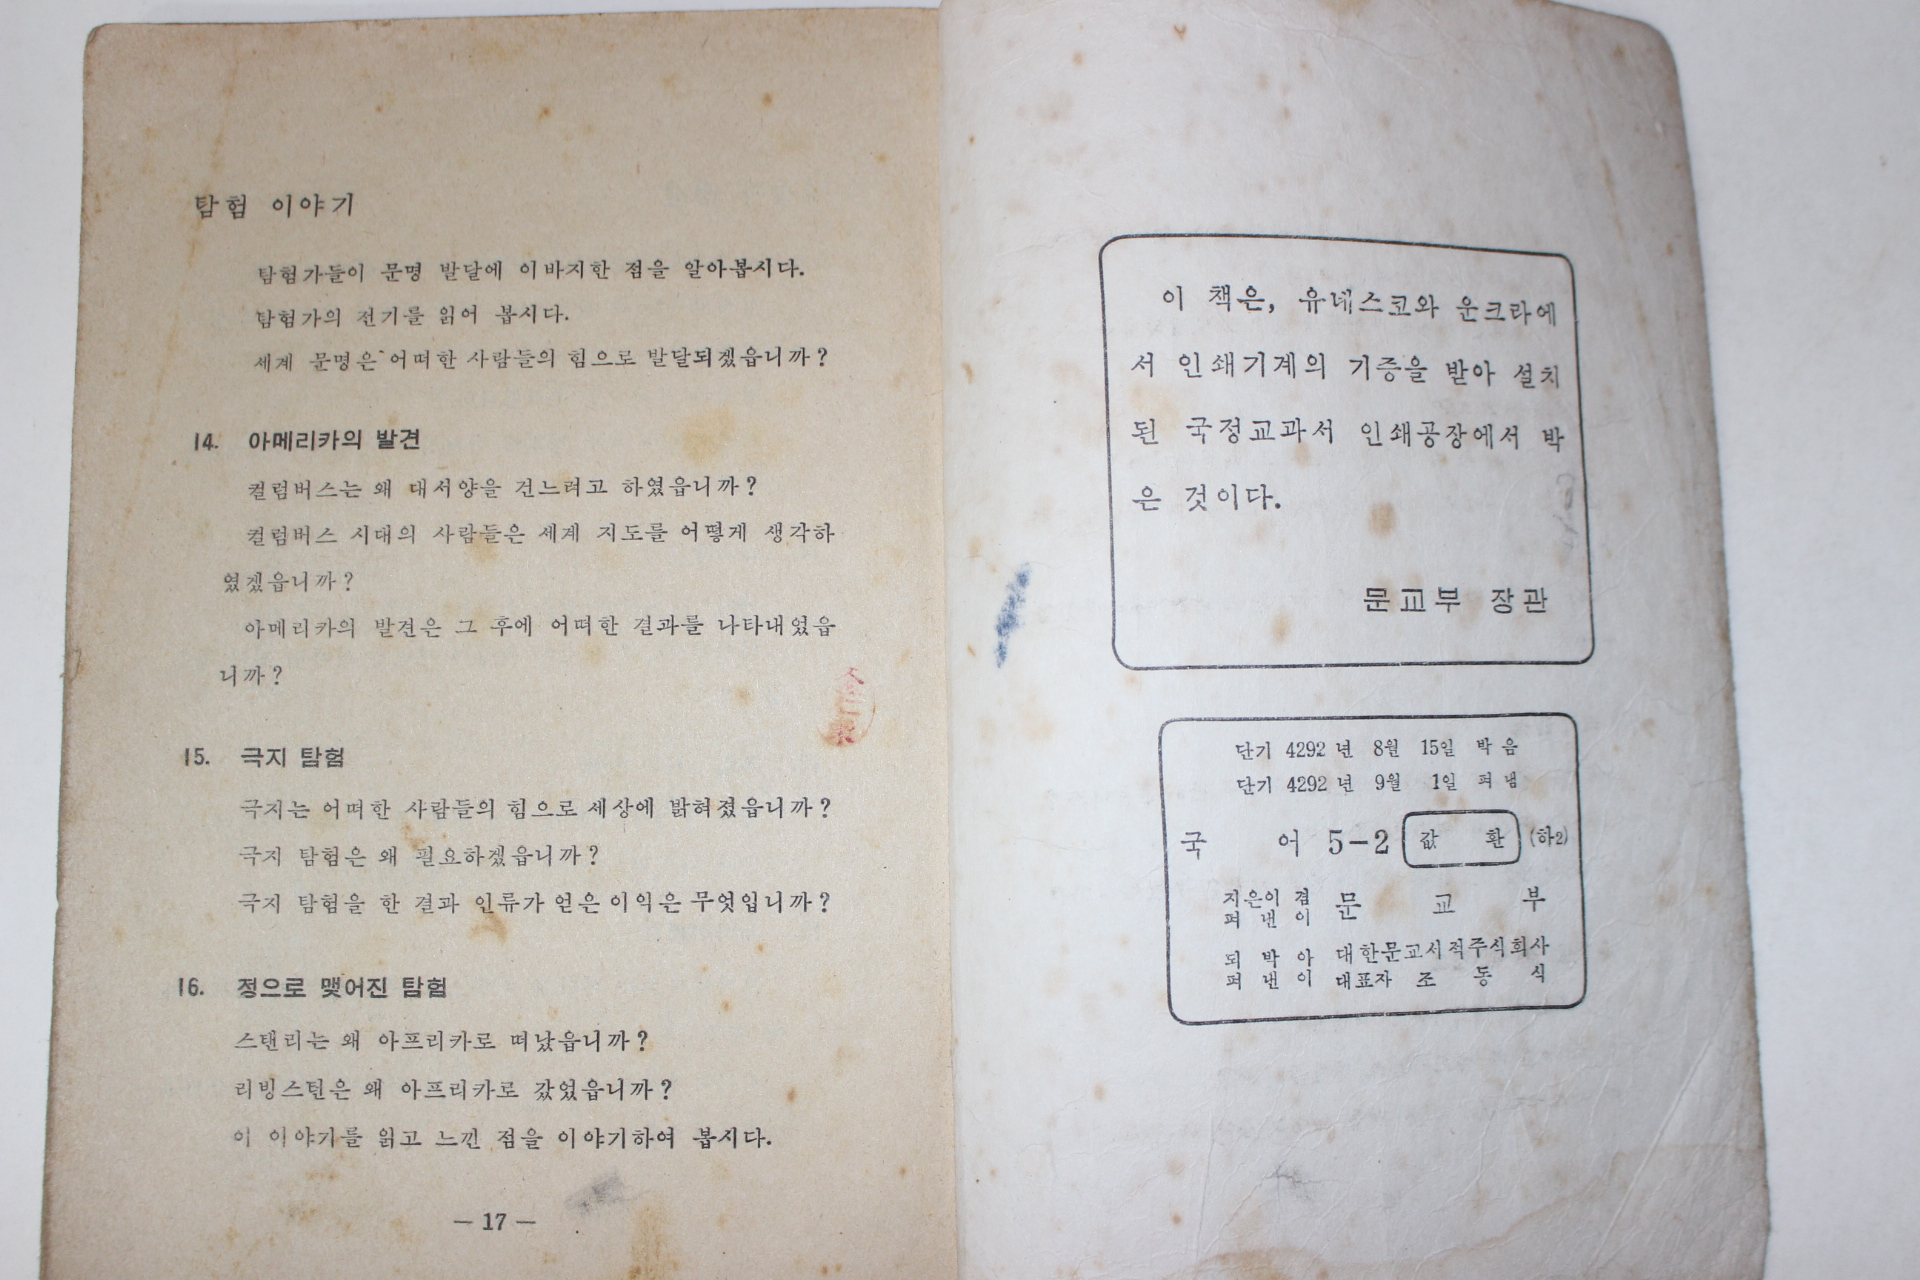 탐험 이야기
탐험가들이 문명 발달에 이바지한 점을 알아봅시다.
탐험가의 전기를 읽어 봅시다.
세계 문명은 어떠한 사람들의 힘으로 발달되겠읍니까?
14. 아메리카의 발견
컬럼버스는 왜 대서양을 건느려고 하였읍니까?
컬럼버스 시대의 사람들은 세계 지도를 어떻게 생각하
였겠읍니까?
아메리카의 발견은 그 후에 어떠한 결과를 나타내었읍
니까?
15. 극지 탐험
극지는 어떠한 사람들의 힘으로 세상에 밝혀졌읍니까?
극지 탐험은 왜 필요하겠읍니까?
극지 탐험을 한 결과 인류가 얻은 이익은 무엇입니까?
16. 정으로 맺어진 탐험
스탠리는 왜 아프리카로 떠났읍니까?
리빙스턴은 왜 아프리카로 갔었읍니까?
이 이야기를 읽고 느낀 점을 이야기하여 봅시다.
— 17 —
이 책은, 유네스코와 운크라에
서 인쇄기계의 기증을 받아 설치
된 국정교과서 인쇄공장에서 박
은 것이다.
문교부 장관
단기 4292년 8월 15일 박음
단기 4292년 9월 1일 펴냄
국 어 5-2 값 환 (하2)
지은이 겸
펴 낸 이 문 교 부
되 박 아 대한문교서적주식회사
펴 낸 이 대표자 조 동 식